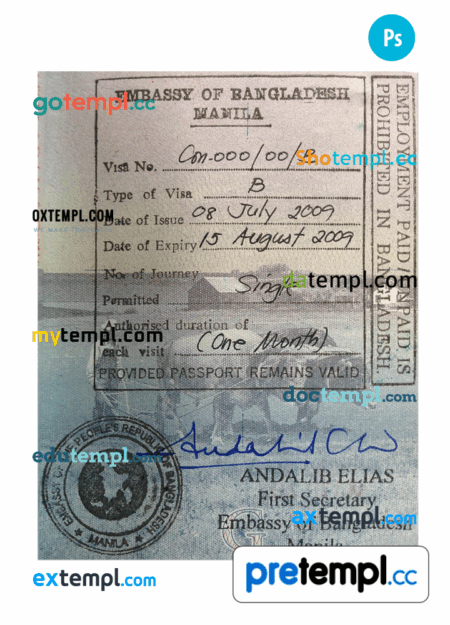 Ps
EMBASSY OF BANGLADESH
MANILA
gotempl.cc
Visa No. Con-000/00/B
Shotempl.cc
Type of Visa B
OXTEMPL.COM
Date of Issue 08 July 2009
Date of Expiry 15 August 2009
No. of Journey
Permitted Single
datempl.com
Authorised duration of
each visit (One Month)
mytempl.com
PROVIDED PASSPORT REMAINS VALID
EMPLOYMENT PAID/UNPAID IS
PROHIBITED IN BANGLADESH
doctempl.com
edutempl.com
EMBASSY OF THE PEOPLE'S REPUBLIC OF BANGLADESH
MANILA
ANDALIB ELIAS
First Secretary
Embassy of Bangladesh
axtempl.com
Manila
extempl.com
pretempl.cc